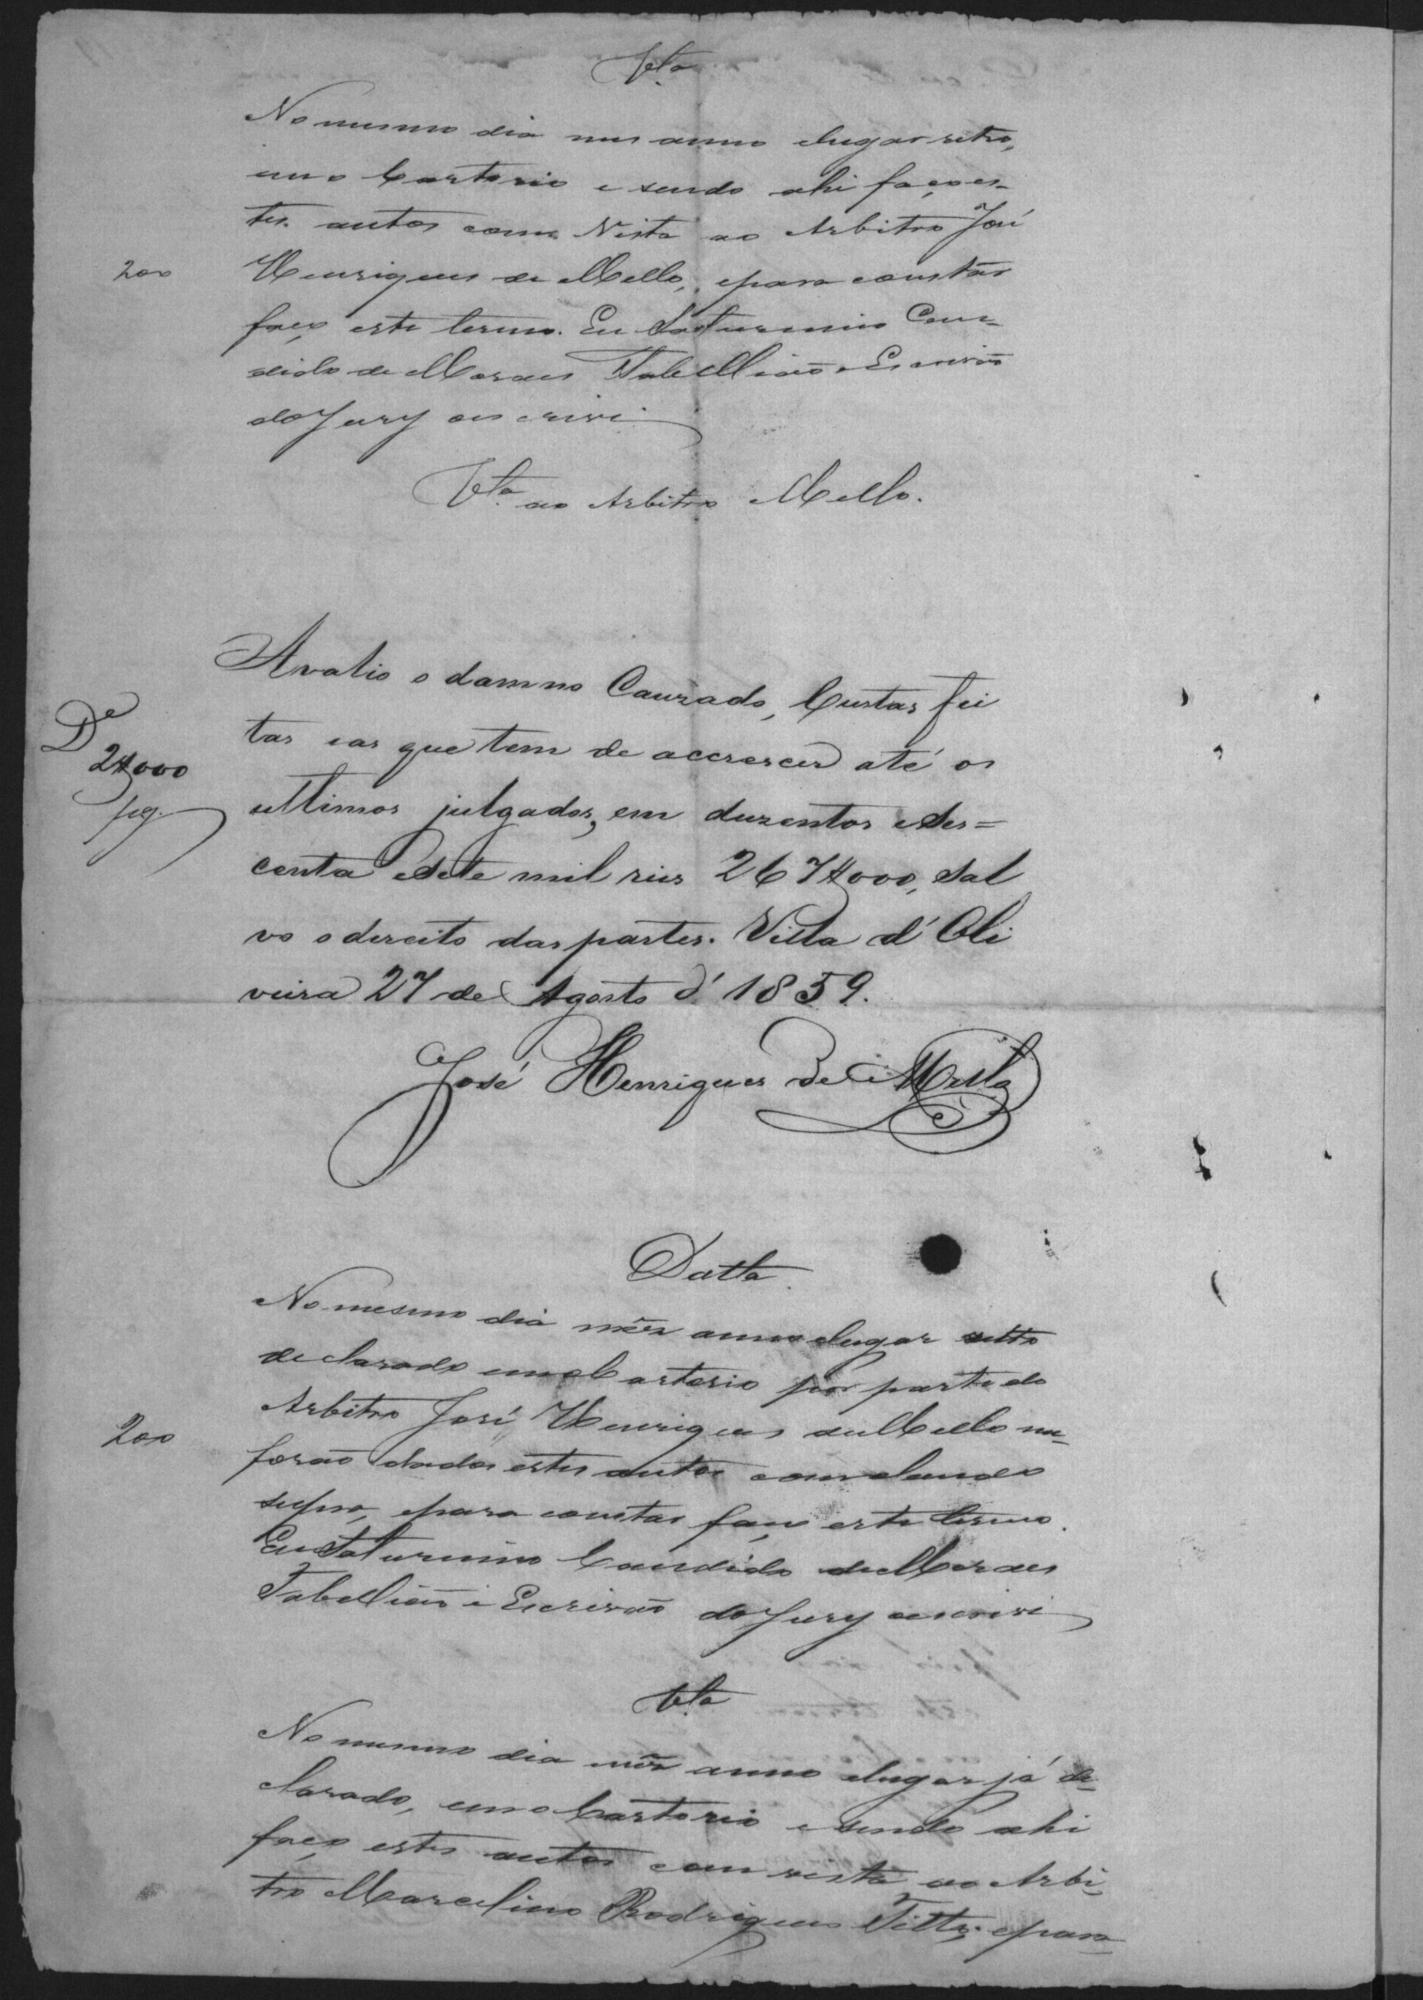 Vta
No mesmo dia mes anno elugar retro,
em o Cartorio e sendo ahi faço es-
tes autos com Vista ao Arbitro José
200
Henriques de Mello, epara constar
faço este termo. Eu Saturnino Can-
dido de Moraes Tabellião e Escrivão
do Jury o escrivi
Vta ao Arbitro Mello.
Avalio o damno Cauzado, Custas fei
tas eas que tem de accrescer até os
De
2$000
pg.
ultimos julgados, em duzentos eses=
centa esete mil reis 267$000, sal
vo odereito das partes. Villa d'Oli
veira 27 de Agosto d'1859.
José Henriques de Mello
Datta
No mesmo dia mês anno elugar retro
declarado em o Cartorio por parte do
Arbitro José Henriques de Mello me
200
forão dados estes autos com o laudo
supra, epara constar faço este termo.
Eu Saturnino Candido de Moraes
Tabellião e Escrivão do Jury o escrivi
Vta
No mesmo dia mês anno elugar já de-
clarado, em o Cartorio e sendo ahi
faço estes autos com vista ao Arbi-
tro Marcelino Rodrigues Titto, epara